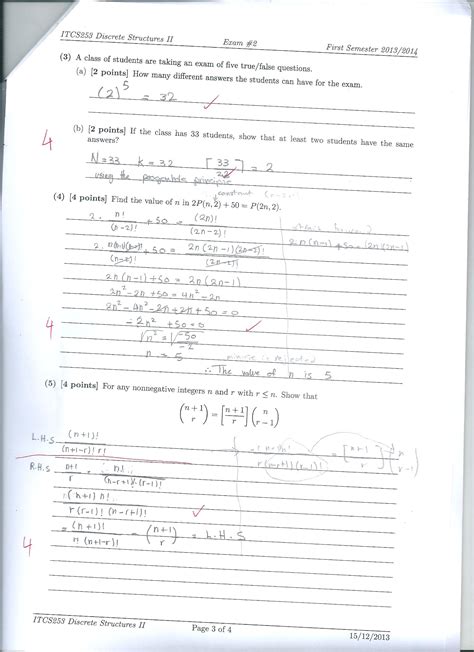 ITCS253 Discrete Structures II Exam #2 First Semester 2013/2014
(3) A class of students are taking an exam of five true/false questions.
(a) [2 points] How many different answers the students can have for the exam.
(2)^5 = 32
4
(b) [2 points] If the class has 33 students, show that at least two students have the same
answers?
N=33 k=32 ⌈33/32⌉ = 2
using the principle
constant
(4) [4 points] Find the value of n in 2P(n, 2) + 50 = P(2n, 2).
2 · n!/(n-2)! + 50 = (2n)!/(2n-2)!
2n(n-1) + 50 = 2n(2n-1)
2 · n(n-1)(n-2)!/(n-2)! + 50 = 2n(2n-1)(2n-2)!/(2n-2)!
2n(n-1)+50 = 2n(2n-1)
2n²-2n+50 = 4n²-2n
2n²-4n²-2n+2n+50=0
-2n²+50=0
4
√n² = √-50/-2
n = 5
minus is rejected
∴ The value of n is 5
(5) [4 points] For any nonnegative integers n and r with r ≤ n. Show that
(n+1 r) = [n+1/r] (n r-1)
L.H.S (n+1)!/(n+1-r)! r!
R.H.S n+1/r · n!/(n-r+1)! (r-1)!
(n+1) n!
r(r-1)! (n-r+1)!
= (n+1)!/n (n+1-r)! = (n+1 r) = L.H.S
4
ITCS253 Discrete Structures II
Page 3 of 4
15/12/2013